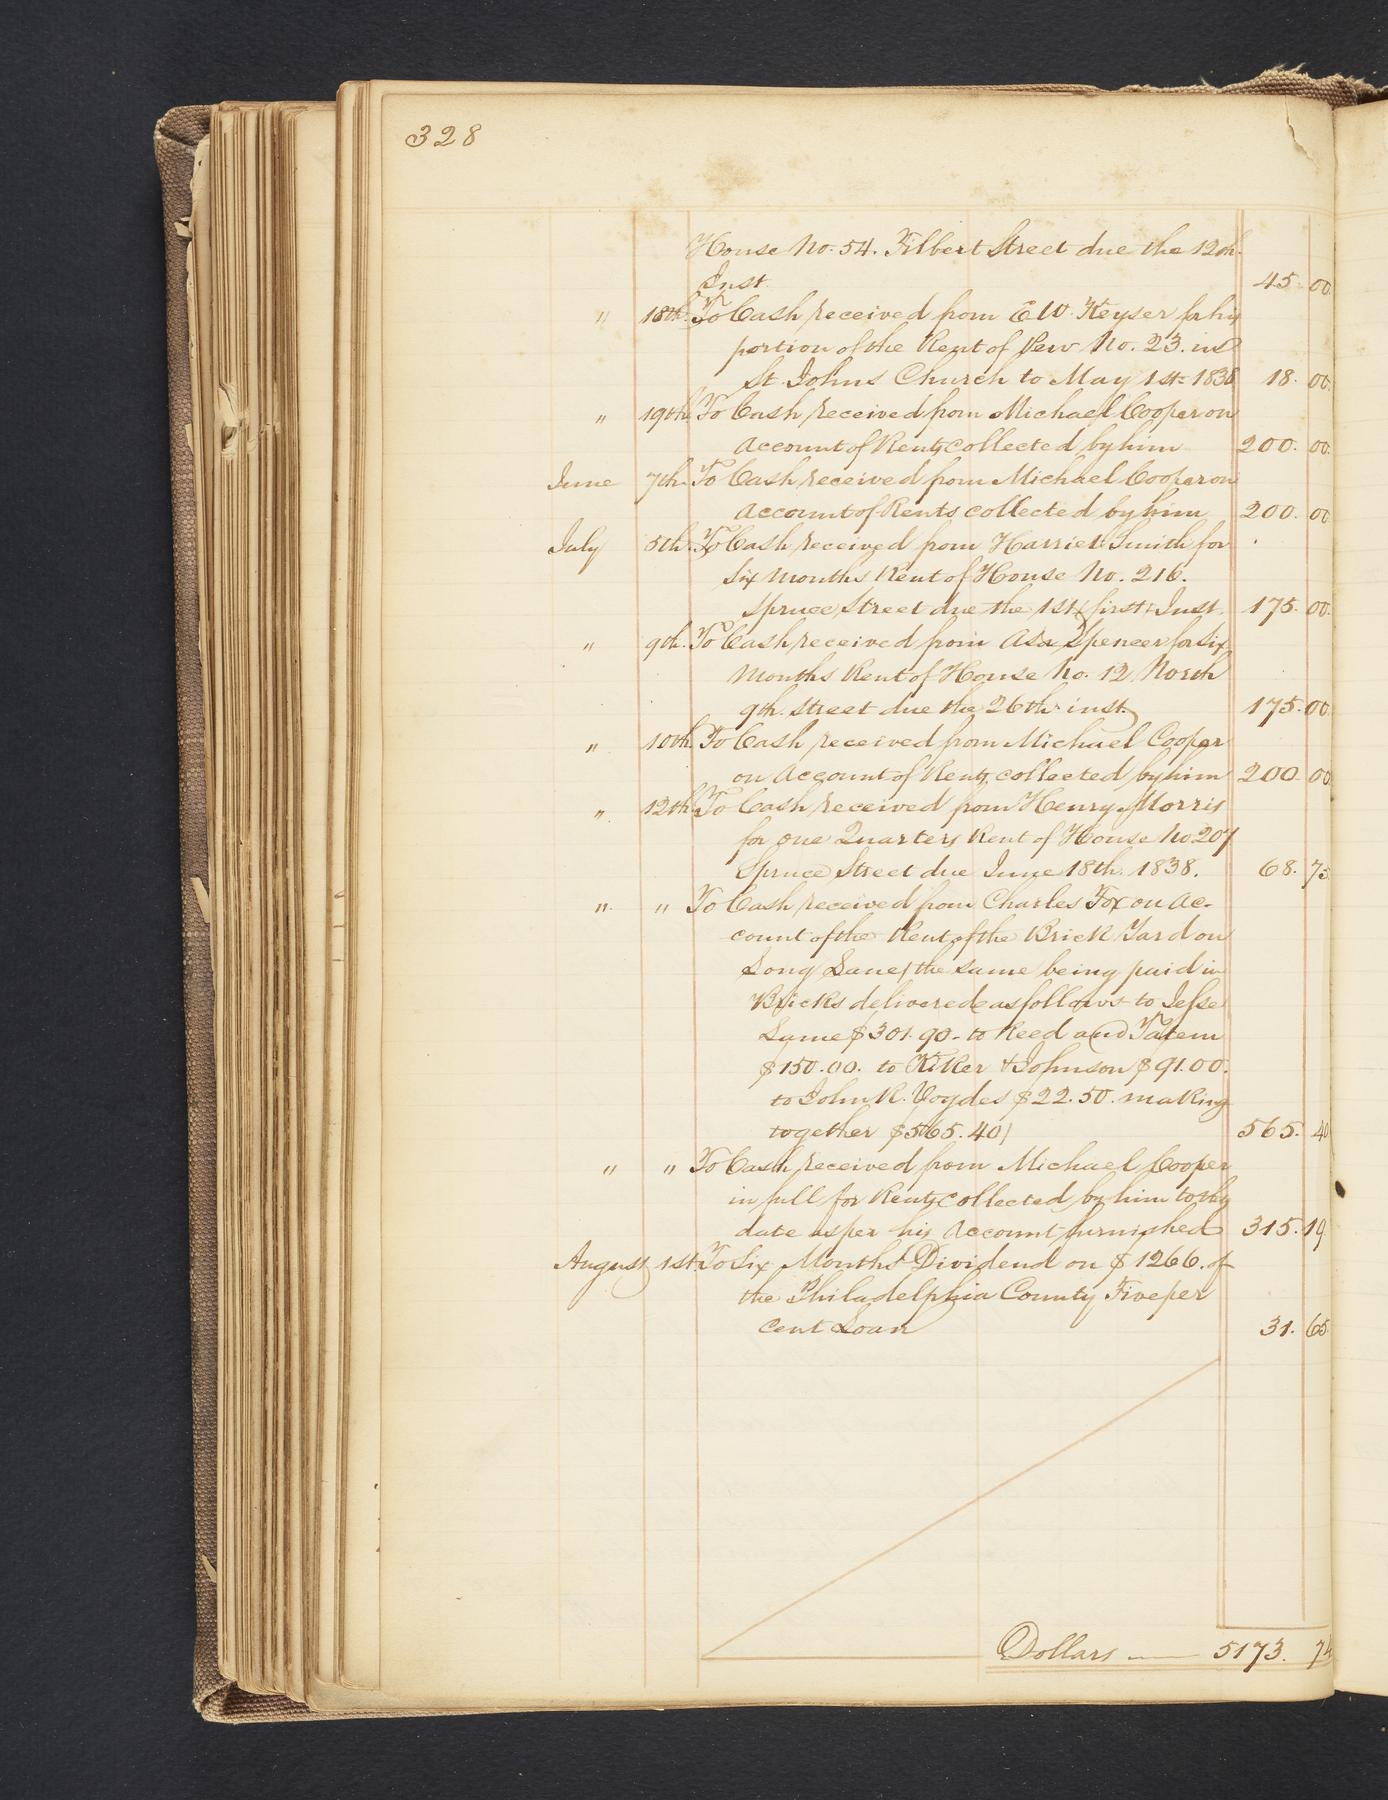 328
House No. 54. Filbert Street due the 12th.
Inst. 45. 00.
" 18th. To Cash received from E W. Keyser for his
portion of the Rent of Pew No. 23. in
St. Johns Church to May 1st= 1838 18. 00.
" 19th. To Cash received from Michael Cooper on
Account of Rents collected by him 200. 00.
June 7th. To Cash received from Michael Cooper on
Account of Rents collected by him 200. 00.
July 5th. To Cash received from Harriet Smith for
Six Months Rent of House No. 216.
Spruce Street due the 1st (first) Inst. 175. 00.
" 9th. To Cash received from Asa Spencer for Six
Months Rent of House No. 12 North
9th. Street due the 26th. inst. 175. 00.
" 10th. To Cash received from Michael Cooper
on Account of Rents collected by him 200. 00.
" 12th. To Cash received from Henry Morris
for one Quarters Rent of House No. 207
Spruce Street due June 18th. 1838. 68. 75.
" " To Cash received from Charles Fox on Ac-
count of the Rent of the Brick Yard on
Long Lane (the same being paid in
Bricks delivered as follows to Jesse
Lame $301.90- to Reed and Tatem
$150.00. to Kiker & Johnson $91.00.
to John R. Voydes $22.50. making
together $565.40) 565. 40
" " To Cash received from Michael Cooper
in full for Rents collected by him to this
date as per his Account furnished 315. 19
August 1st. To Six Months Dividend on $1266. of
the Philadelphia County Five per
cent Loan 31. 65.
Dollars 5173. 74